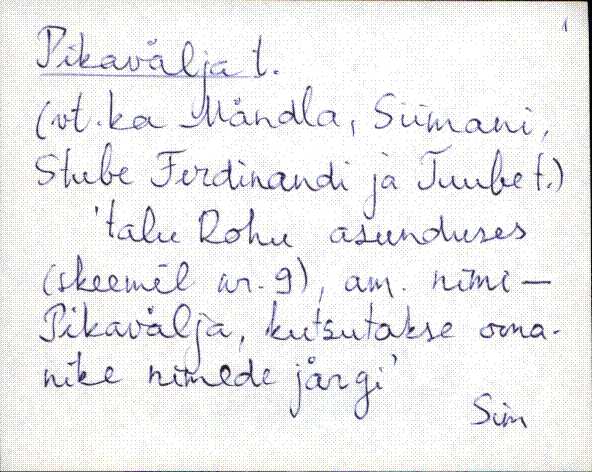 1
Pikavälja t.
(vt. ka Mändla, Siimani,
Stube Ferdinandi ja Tuube t.)
'talu Rohu asunduses
(skeemil nr. 9), am. nimi —
Pikavälja, kutsutakse oma-
nike nimede järgi'
Sim